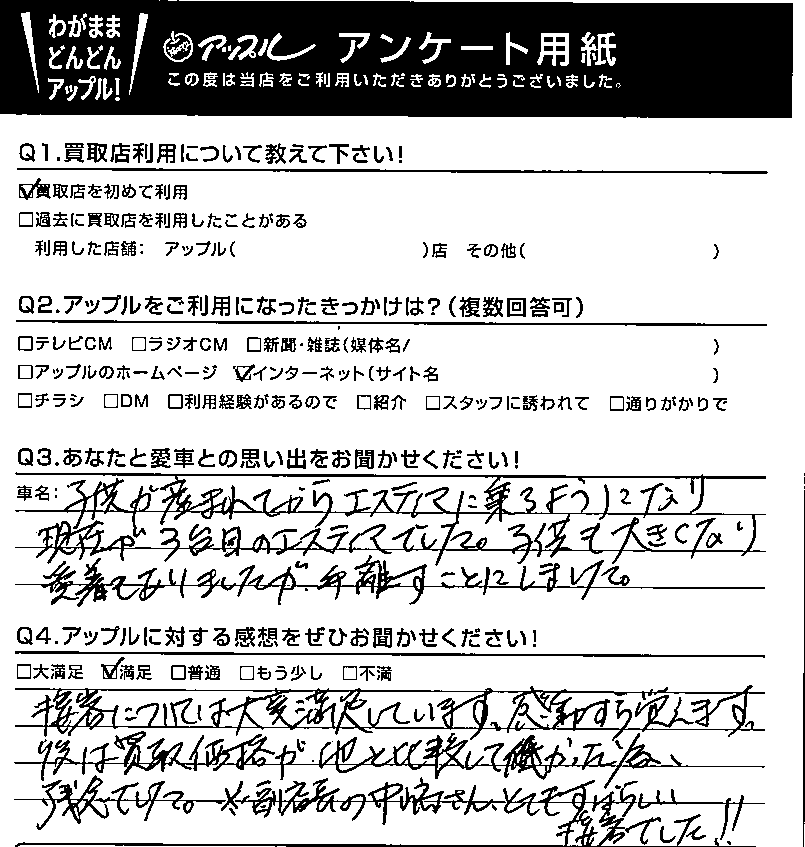 わがまま
どんどん
アップル!
アップル アンケート用紙
この度は当店をご利用いただきありがとうございました。
Q1.買取店利用について教えて下さい!
☑買取店を初めて利用
□過去に買取店を利用したことがある
利用した店舗: アップル( )店 その他( )
Q2.アップルをご利用になったきっかけは?(複数回答可)
□テレビCM □ラジオCM □新聞・雑誌(媒体名/ )
□アップルのホームページ ☑インターネット(サイト名 )
□チラシ □DM □利用経験があるので □紹介 □スタッフに誘われて □通りがかりで
Q3.あなたと愛車との思い出をお聞かせください!
車名: 子供が産まれてからエスティマに乗るようになり
現在が3台目のエスティマでした。子供も大きくなり
愛着もありましたが、手離すことにしました。
Q4.アップルに対する感想をぜひお聞かせください!
□大満足 ☑満足 □普通 □もう少し □不満
接客については大変満足しています。感動すら覚えます。
後は買取価格が他と比較して低かった為、
残念でした。※副店長の中嶋さん、とてもすばらしい
接客でした!!